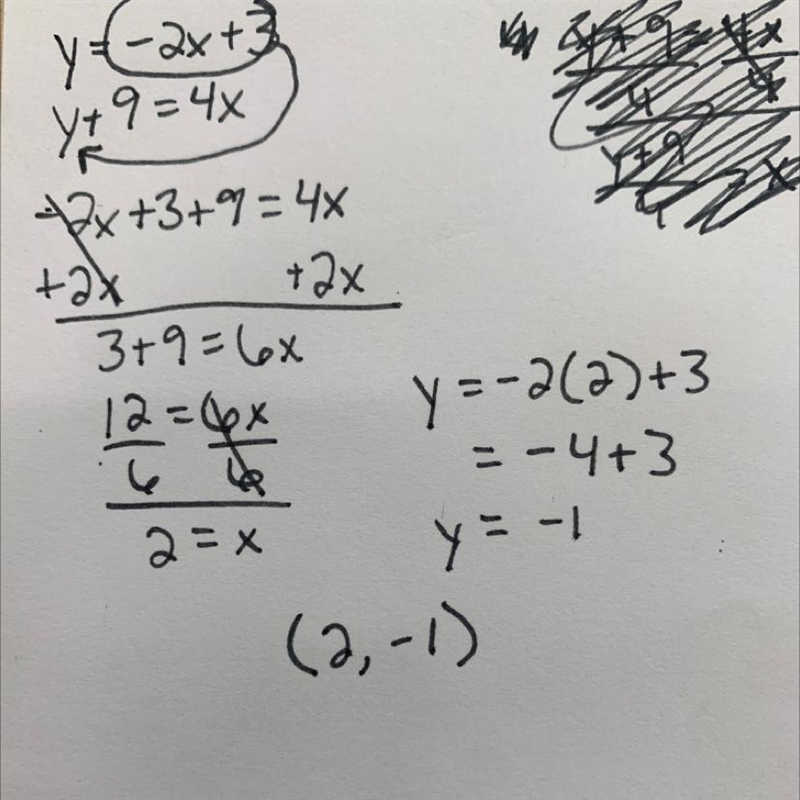 y = -2x+3
y+9=4x
-2x+3+9=4x
+2x +2x
3+9=6x
12 = 6x
6 6
2 = x
y = -2(2)+3
= -4+3
y = -1
(2, -1)